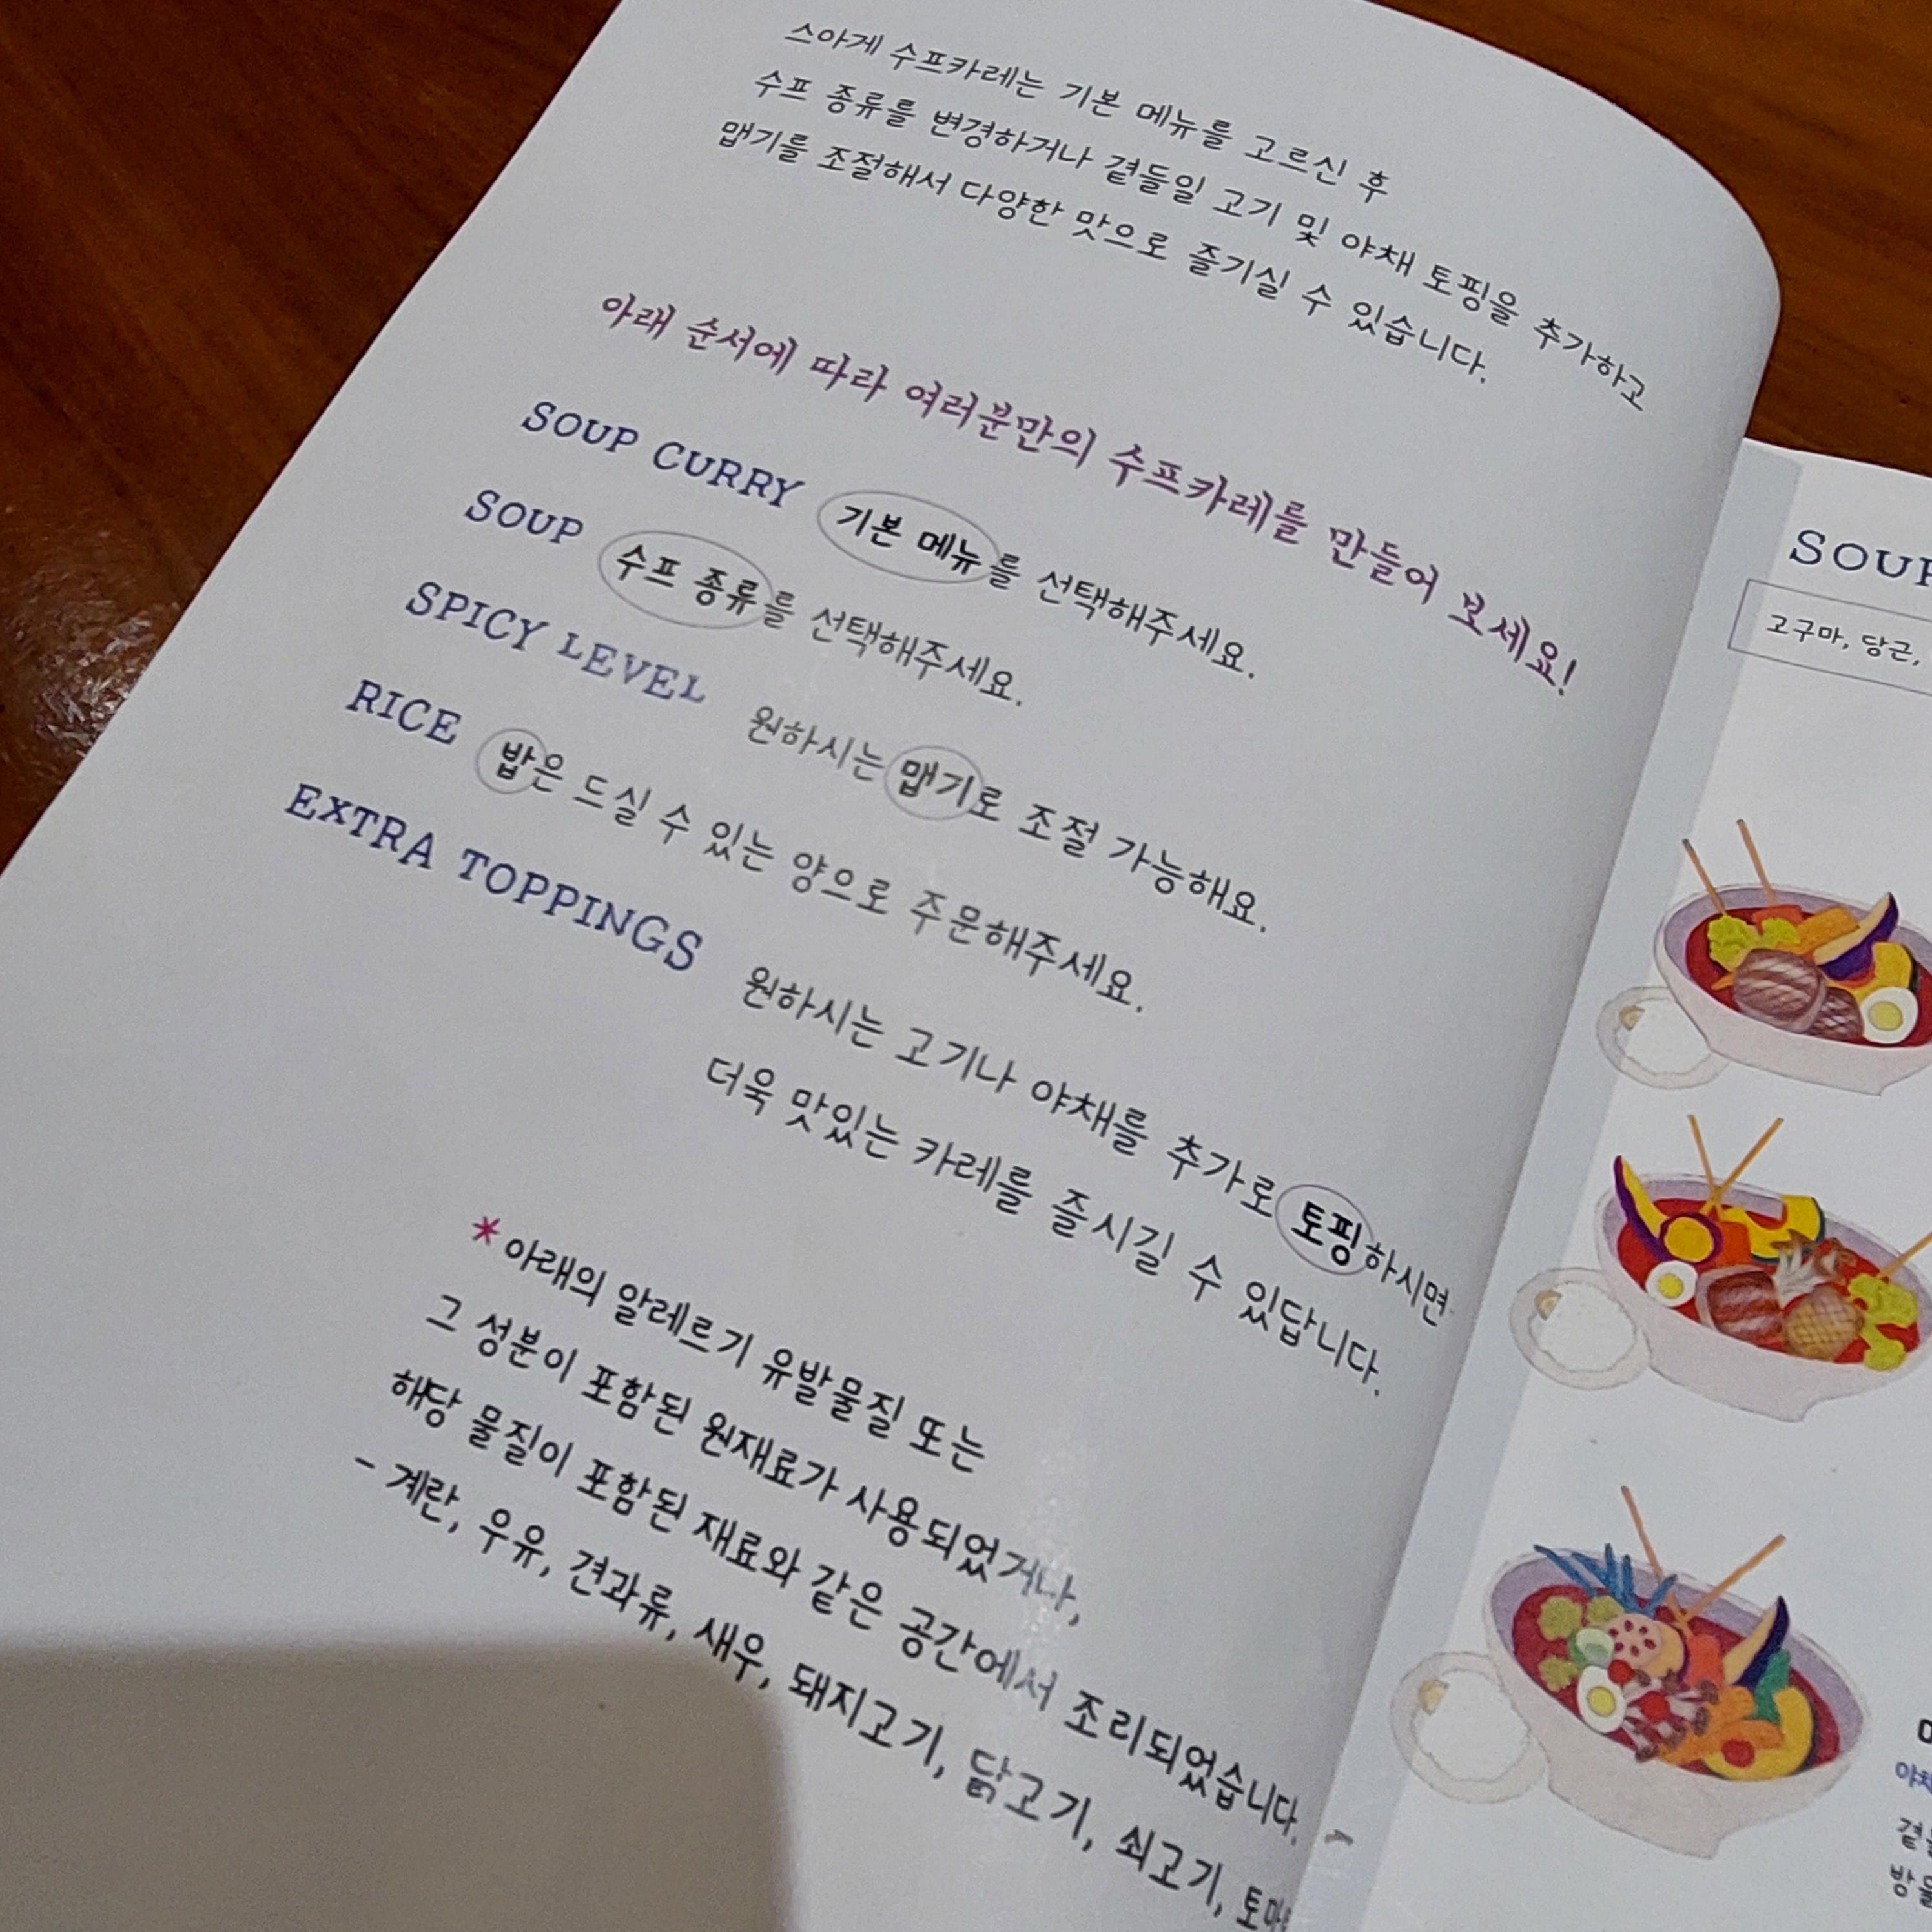 스아게 수프카레는 기본 메뉴를 고르신 후
수프 종류를 변경하거나 곁들일 고기 및 야채 토핑을 추가하고
맵기를 조절해서 다양한 맛으로 즐기실 수 있습니다.
아래 순서에 따라 여러분만의 수프카레를 만들어 보세요!
SOUP CURRY 기본 메뉴를 선택해주세요.
SOUP 수프 종류를 선택해주세요.
SPICY LEVEL 원하시는 맵기로 조절 가능해요.
RICE 밥은 드실 수 있는 양으로 주문해주세요.
EXTRA TOPPINGS 원하시는 고기나 야채를 추가로 토핑하시면
더욱 맛있는 카레를 즐시길 수 있답니다.
*아래의 알레르기 유발물질 또는
그 성분이 포함된 원재료가 사용되었거나,
해당 물질이 포함된 재료와 같은 공간에서 조리되었습니다.
- 계란, 우유, 견과류, 새우, 돼지고기, 닭고기, 쇠고기,
고구마, 당근,